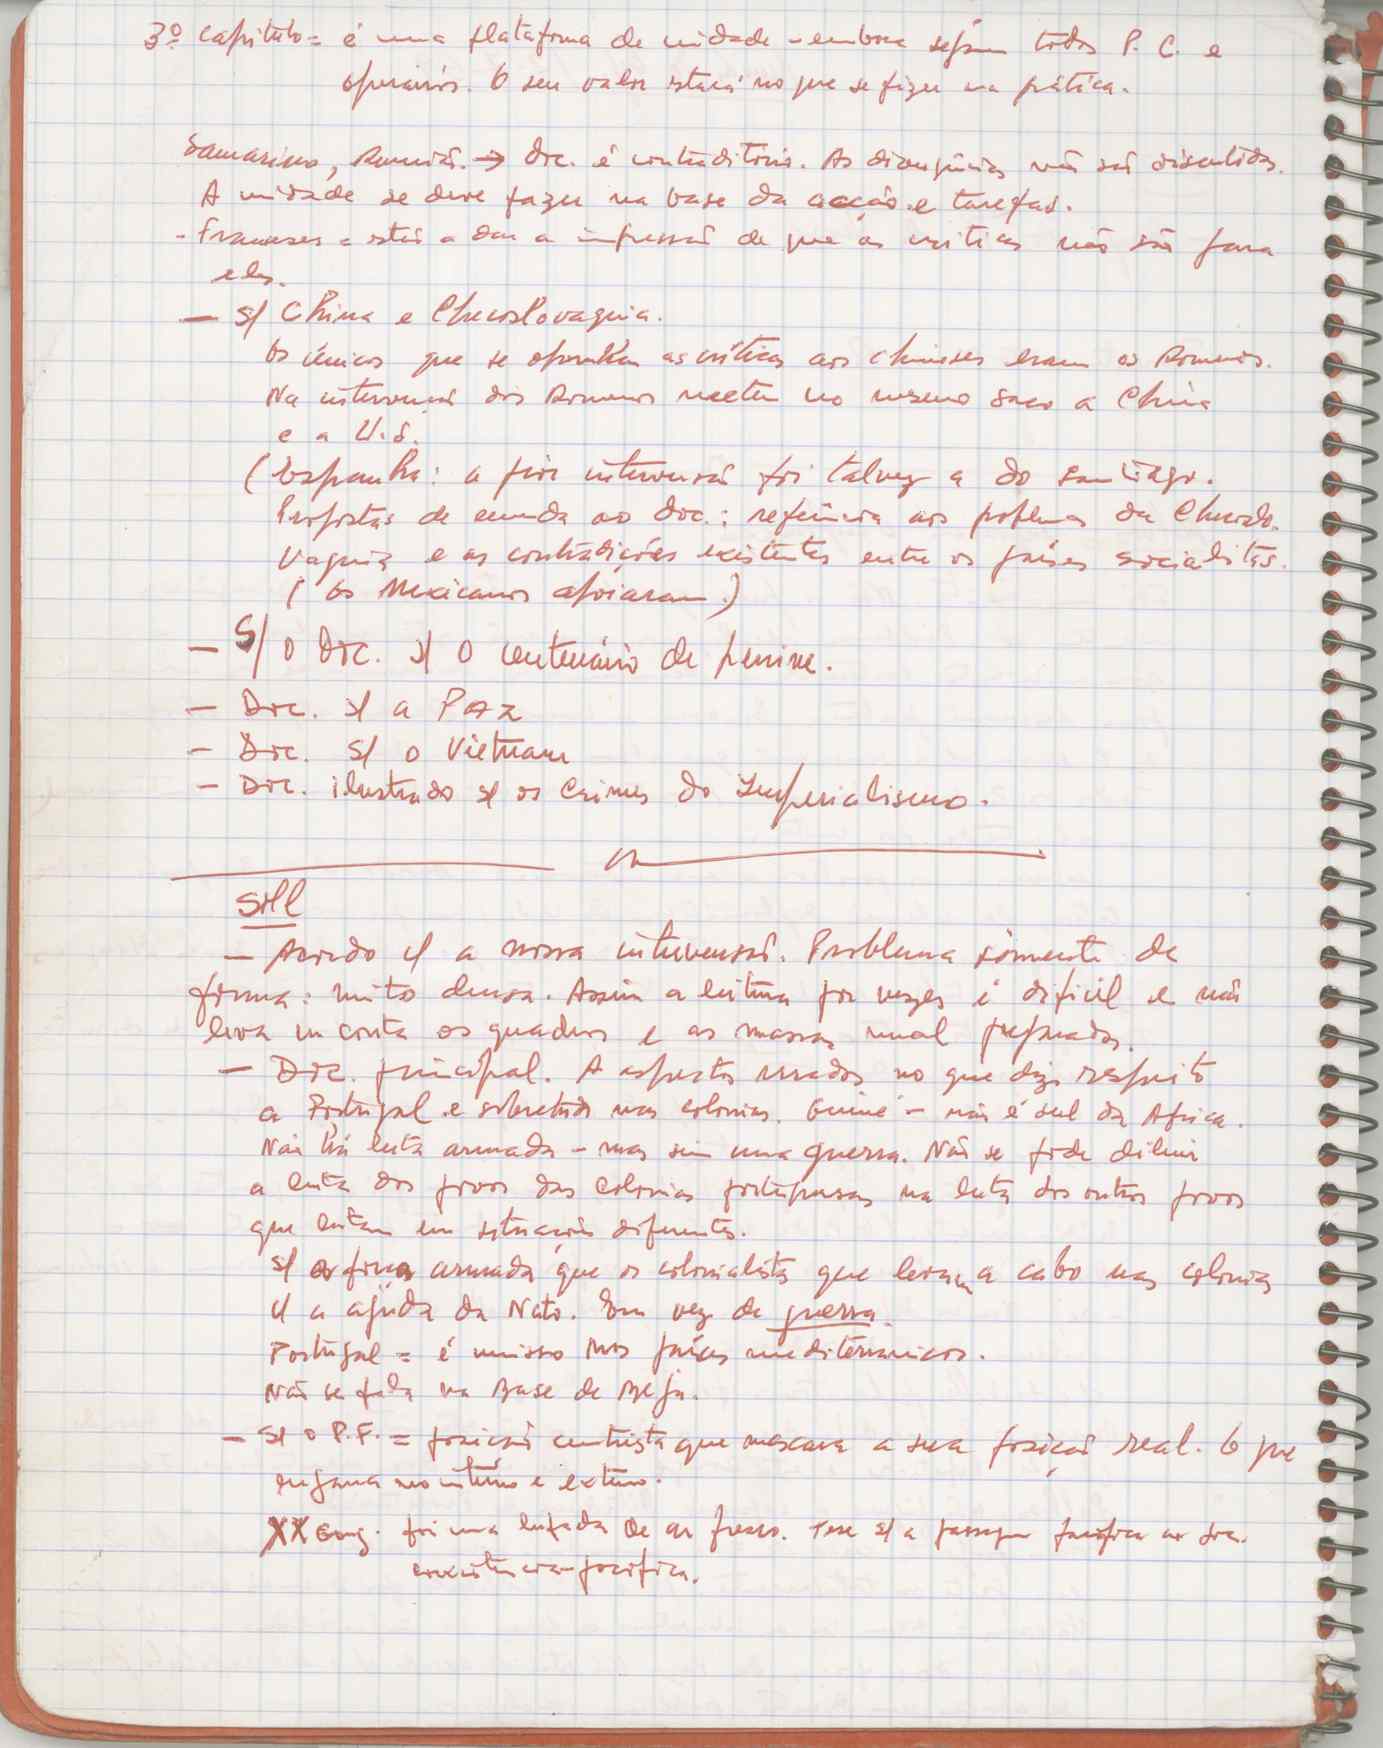 3º Capítulo = é uma plataforma de unidade - embora sejam todos P. C. e
operários. O seu valor estará no que se fizer na prática.
Samarino, Romenos. → doc. é contraditorio. As divergências não são discutidas.
A unidade se deve fazer na base da acção e tarefas.
- Franceses = estão a dar a impressão de que as criticas não são para
eles.
- s/ China e Checoslovaquia.
Os únicos que se opunham as críticas aos chineses eram os Romenos.
Na intervenção dos Romenos metem no mesmo saco a China
e a U.S.
(Espanha: a pior intervenção foi talvez a do Santiago.
Propostas de emenda ao doc.: referência aos problemas da Checoslo-
vaquia e as contradições existentes entre os países socialistas.
(Os Mexicanos apoiaram.)
- S/ o Doc. s/ o centenário de Lenine.
- Doc. s/ a PAZ
- Doc. s/ o Vietnam
- Doc. ilustrado s/ os Crimes do Imperialismo.
- Acordo c/ a nossa intervensão. Problema sómente de
forma: muito densa. Assim a leitura por vezes é dificil e não
leva em conta os quadros e as massas mal preparadas.
- Doc. principal. A aspectos errados no que diz respeito
a Portugal e sobretudo nas colonias. Guiné - não é sul da Africa.
Não há luta armada - mas sim uma guerra. Não se pode diluir
a luta dos povos das colonias portuguesas na luta dos outros povos
que lutam em situações diferentes.
s/ a força armada que os colonialistas que levam a cabo nas colonias
c/ a ajuda da Nato. Em vez de guerra.
Portugal = é omisso nos países mediterranicos.
Não se fala na Base de Beja.
- S/ o P.F. = posição centrista que mascara a sua posição real. O que
engana no interno e externo.
XX Cong. foi uma lufada de ar fresco. Tese s/ a passagem pacifica ao soc.
coexistencia pacifica.